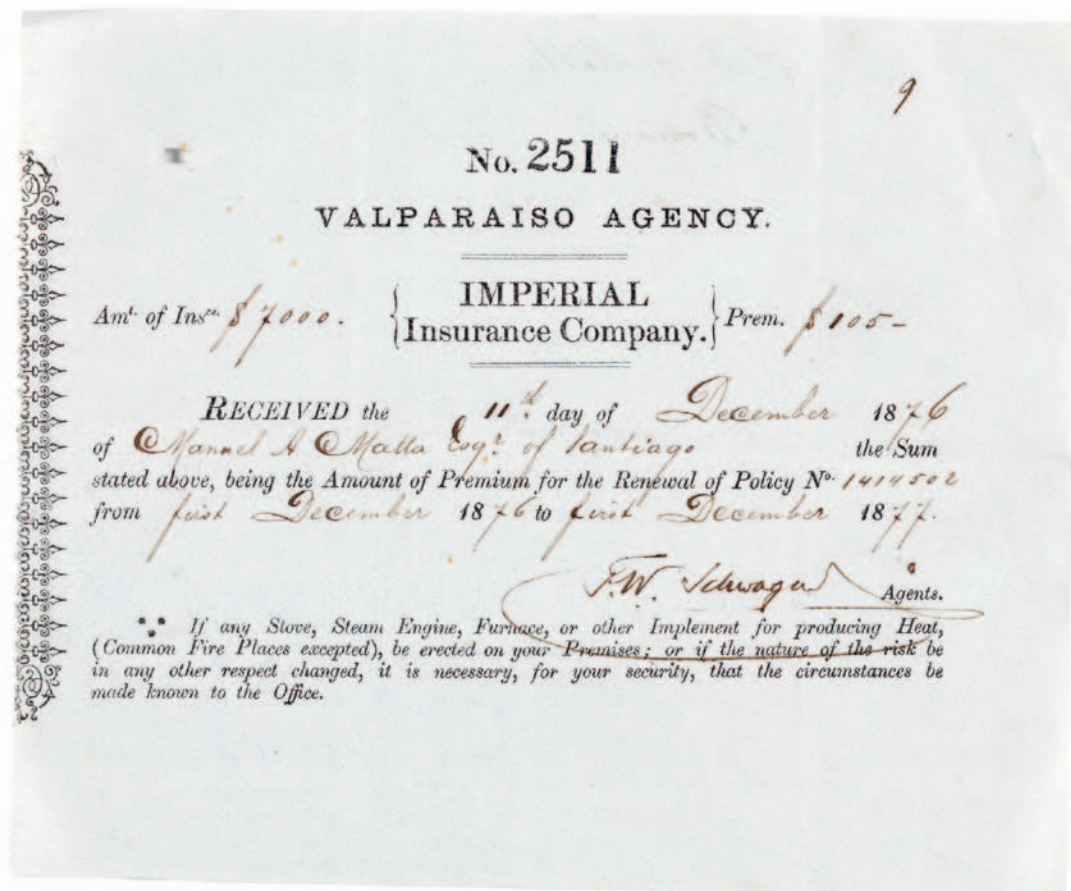 9
No. 2511
VALPARAISO AGENCY.
Amt. of Insce. $7000. { IMPERIAL Insurance Company. } Prem. $105-
RECEIVED the 11th. day of December 1876
of Manuel A Matta Esqr. of Santiago the Sum
stated above, being the Amount of Premium for the Renewal of Policy No. 1414502
from first December 1876 to first December 1877.
F.W. Schwager Agents.
If any Stove, Steam Engine, Furnace, or other Implement for producing Heat,
(Common Fire Places excepted), be erected on your Premises; or if the nature of the risk be
in any other respect changed, it is necessary, for your security, that the circumstances be
made known to the Office.